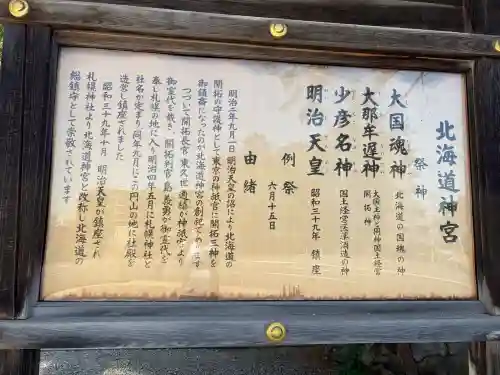 北海道神宮
祭神
大国魂神 北海道の国魂の神
大那牟遅神 大国主神と同神国土経営
開拓神
少彦名神 国土経営医薬酒造の神
明治天皇 昭和三十九年 鎮座
例祭 六月十五日
由緒
明治二年九月一日 明治天皇の詔により北海道の
開拓の守護神として東京の神祇官に開拓三神を
御鎮斎になったのが北海道神宮の創祀であります
つづいて開拓長官 東久世通禧が神祇官より
御霊代を戴き、開拓判官島 義勇が御霊代を
奉じ札幌の地に入り明治四年五月に札幌神社と
社名が定まり同年九月にこの円山の地に社殿を
造営し鎮座されました
昭和三十九年十月 明治天皇が鎮座され
札幌神社より北海道神宮と改称し北海道の
総鎮守として崇敬されています